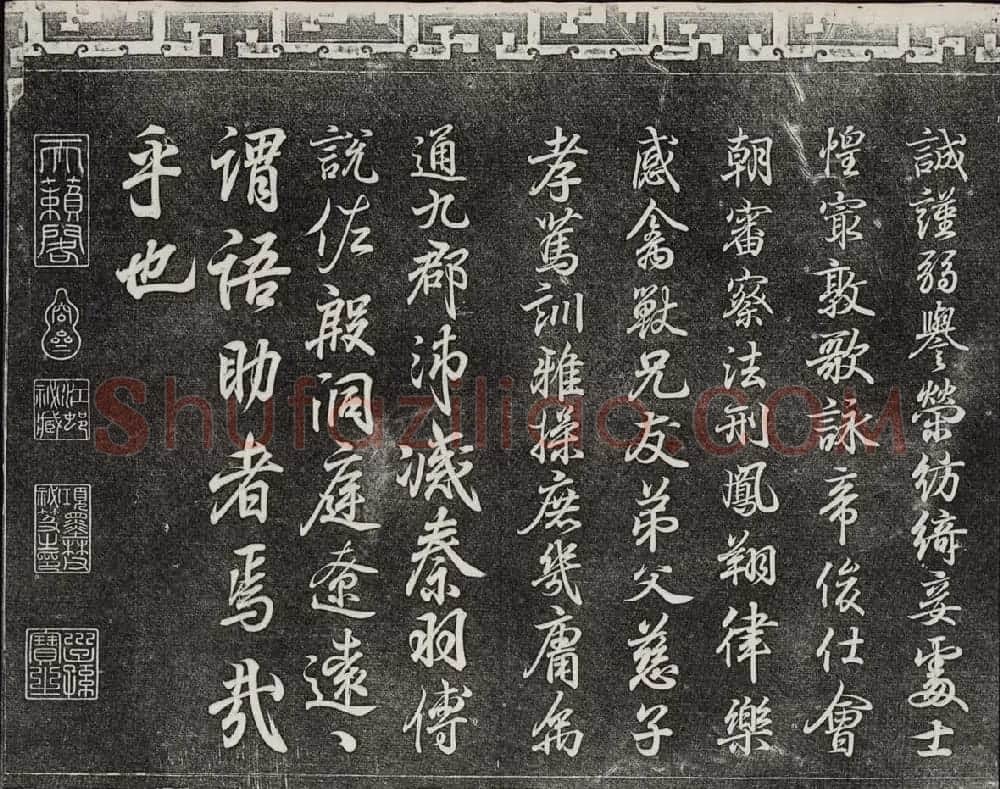 誠謹弱譽榮紡綺妾處士
煌㝡敦歌詠帝俊仕會
朝審察法刑鳳翔律樂
感禽獸兄友弟父慈子
孝篤訓雅操庶幾庸
通九郡沛滅秦羽傅
說佐殷洞庭遼遠、
謂語助者焉哉
乎也
天籟閣
江邨祕藏
項墨林祕笈之章
Shufaziliao.COM